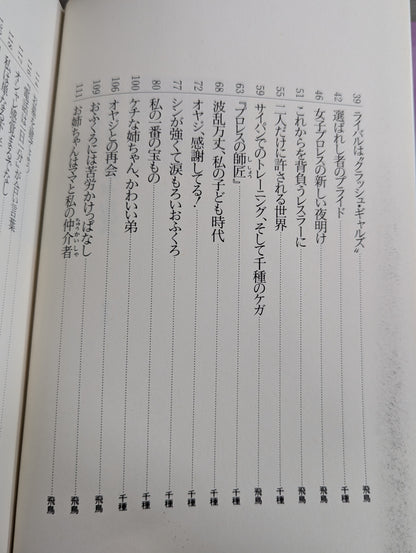 39 ライバルは〝クラッシュ・ギャルズ〟 飛鳥
42 選ばれし者のプライド 千種
46 女子プロレスの新しい夜明け 飛鳥
51 これからを背負うレスラーに 飛鳥
55 二人だけに許される世界 千種
59 サイパンでのトレーニング、そして千種のケガ 飛鳥
63 『プロレスの師匠』 千種
68 波乱万丈、私の子ども時代 千種
72 オヤジ、感謝してる! 千種
77 シンが強くて涙もろいおふくろ 千種
80 私の一番の宝もの 千種
100 ケチな姉ちゃん、かわいい弟 千種
106 オヤジとの再会 飛鳥
109 おふくろには苦労かけっぱなし 飛鳥
111 お姉ちゃんはママと私の仲介者 飛鳥